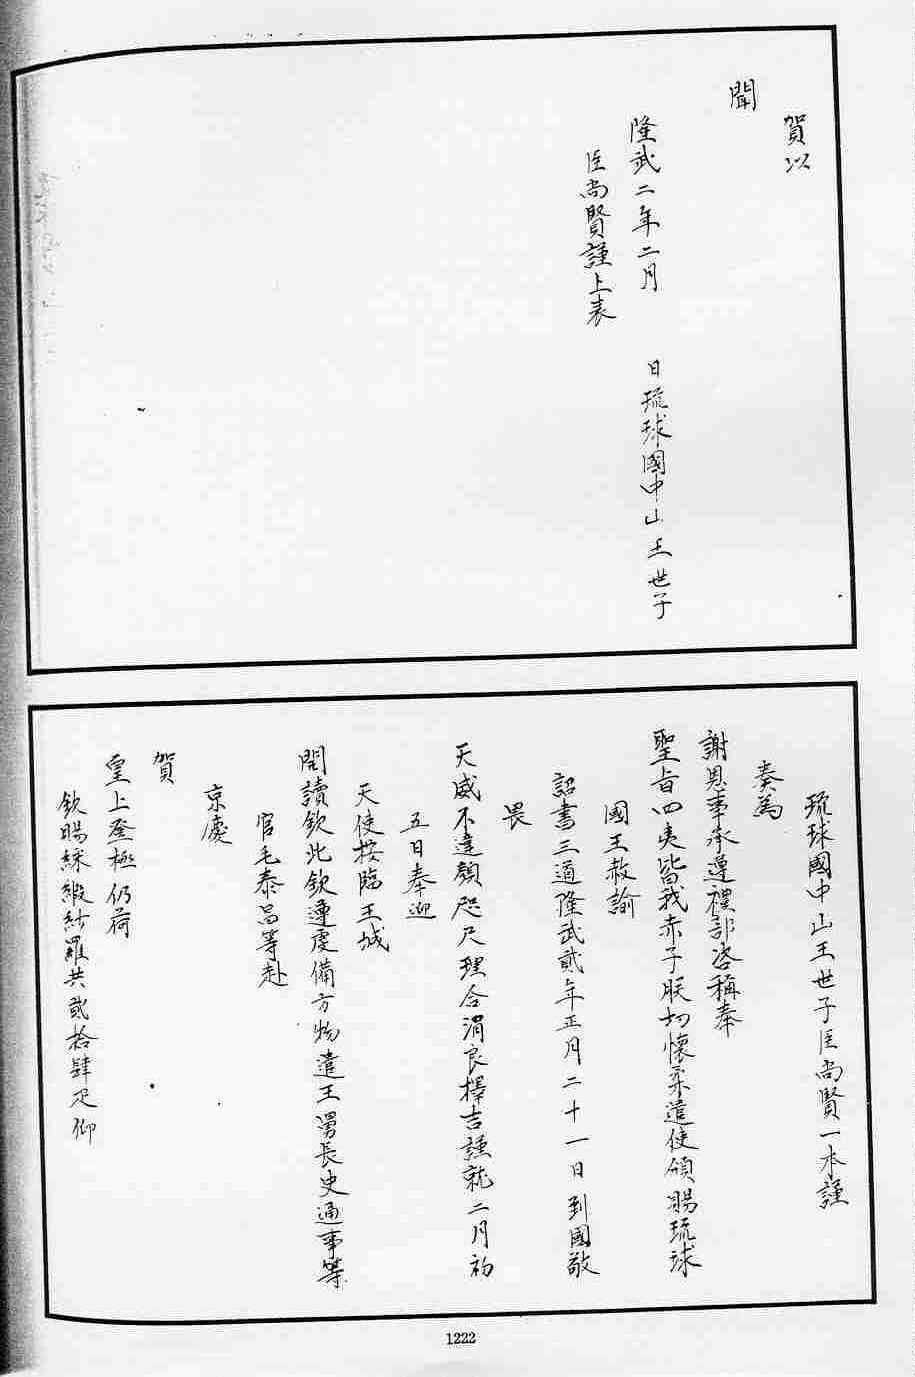 賀以
聞
隆武二年二月　　日琉球國中山王世子
臣尚賢謹上表
琉球國中山王世子臣尚賢一本謹
奏為
謝恩事承遵禮部咨稱奉
聖旨四夷皆我赤子朕切懷柔遣使頒賜琉球
國王赦諭
詔書三道隆武貳年正月二十一日到國敬
畏
天威不違顏咫尺理合涓良擇吉謹就二月初
五日奉迎
天使按臨王城
開讀欽此欽遵虔備方物遣王舅長史通事等
官毛泰昌等赴
京慶
賀
皇上登極仍荷
欽賜綵緞紗羅共貳拾肆疋仰
1222